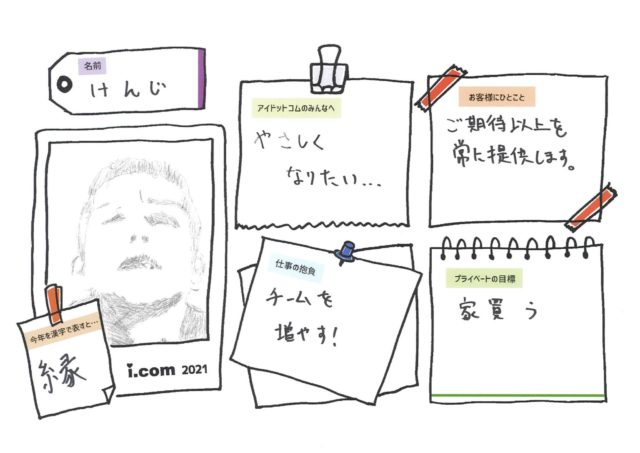 名前
けんじ
アイドットコムのみんなへ
やさしく
なりたい…
お客様にひとこと
ご期待以上を
常に提供します。
今年を漢字で表すと…
縁
i.com 2021
仕事の抱負
チームを
増やす!
プライベートの目標
家買う